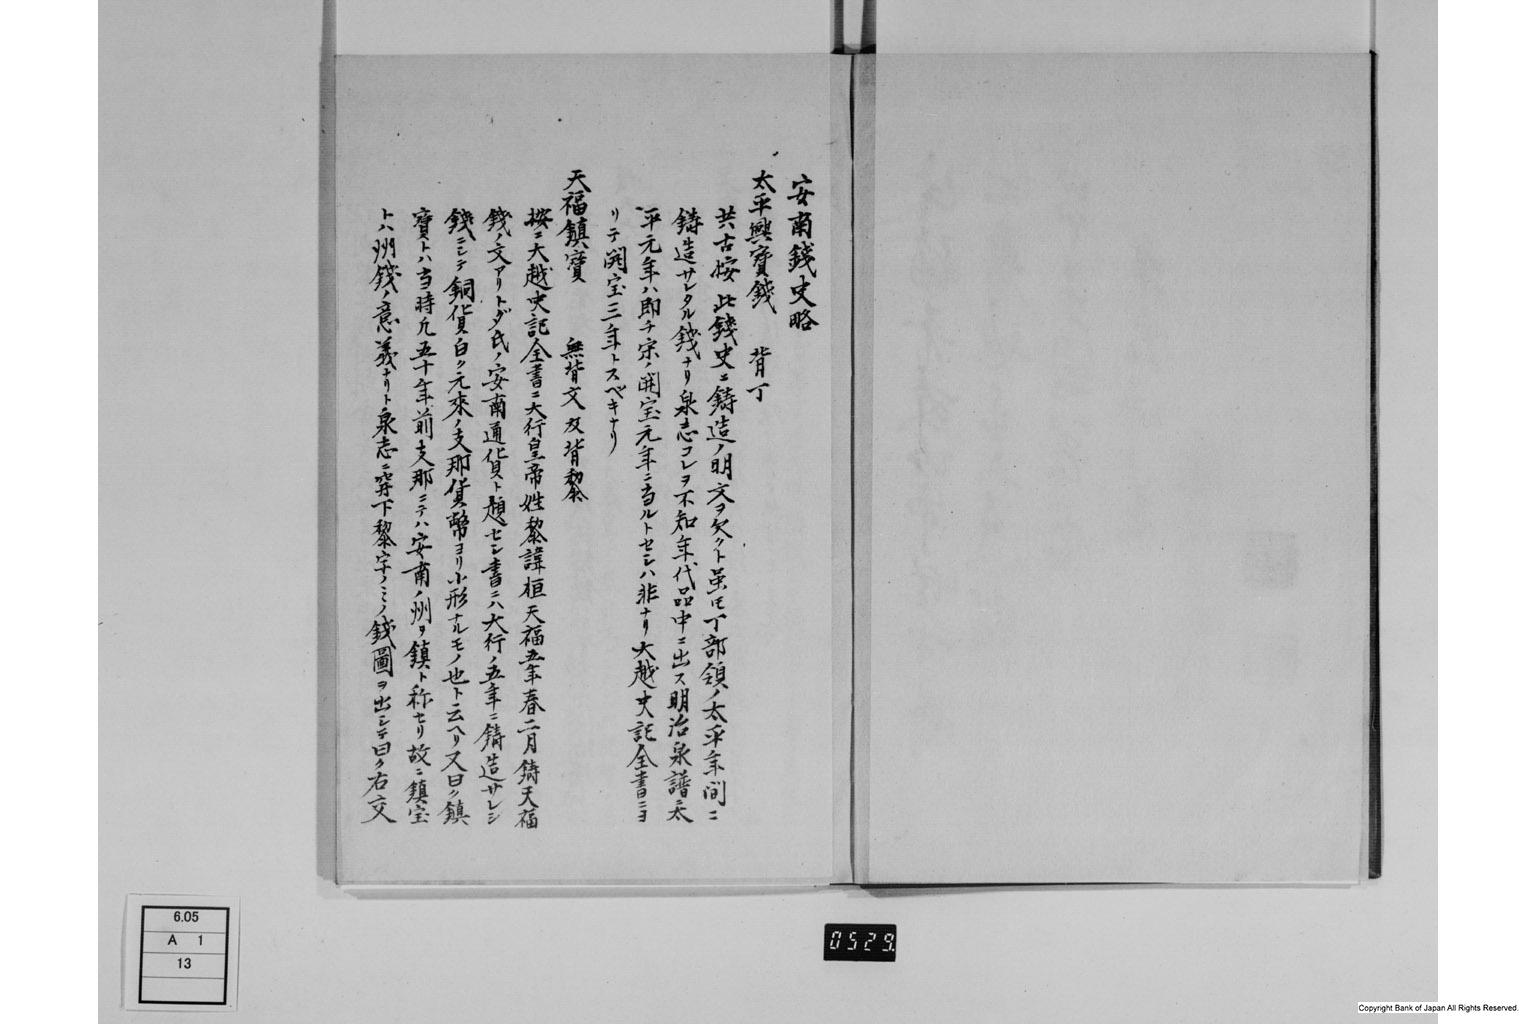 安南錢史略
太平興寶錢　背丁
共古按此錢史ニ鋳造ノ明文ヲ欠クト虽モ丁部領ノ太平年间ニ
鋳造サレタル錢ナリ泉志コレヲ不知年代品中ニ出ス明治泉譜ニ太
平元年ハ即チ宋ノ開宝元年ニ当ルトセシハ非ナリ大越史記全書ニヨ
リテ開宝三年トスベキナリ
天福鎮寶　無背文及背黎
按ニ大越史記全書ニ大行皇帝姓黎諱桓天福五年春二月鋳天福
錢ノ文アリトダ氏ノ安南通貨ト題セシ書ニハ大行ノ五年ニ鋳造サレシ
錢ニシテ銅貨白ク元來ノ支那貨幣ヨリ小形ナルモノ也ト云ヘリ又曰ク鎮
寶トハ当時凡五十年前支那ニテハ安南ノ州ヲ鎮ト称セリ故ニ鎮宝
トハ州錢ノ意義ナリト泉志ニ穿下黎字ノミノ錢圖ヲ出シテ曰ク右交
6.05
A 1
13
0529
Copyright Bank of Japan All Rights Reserved.